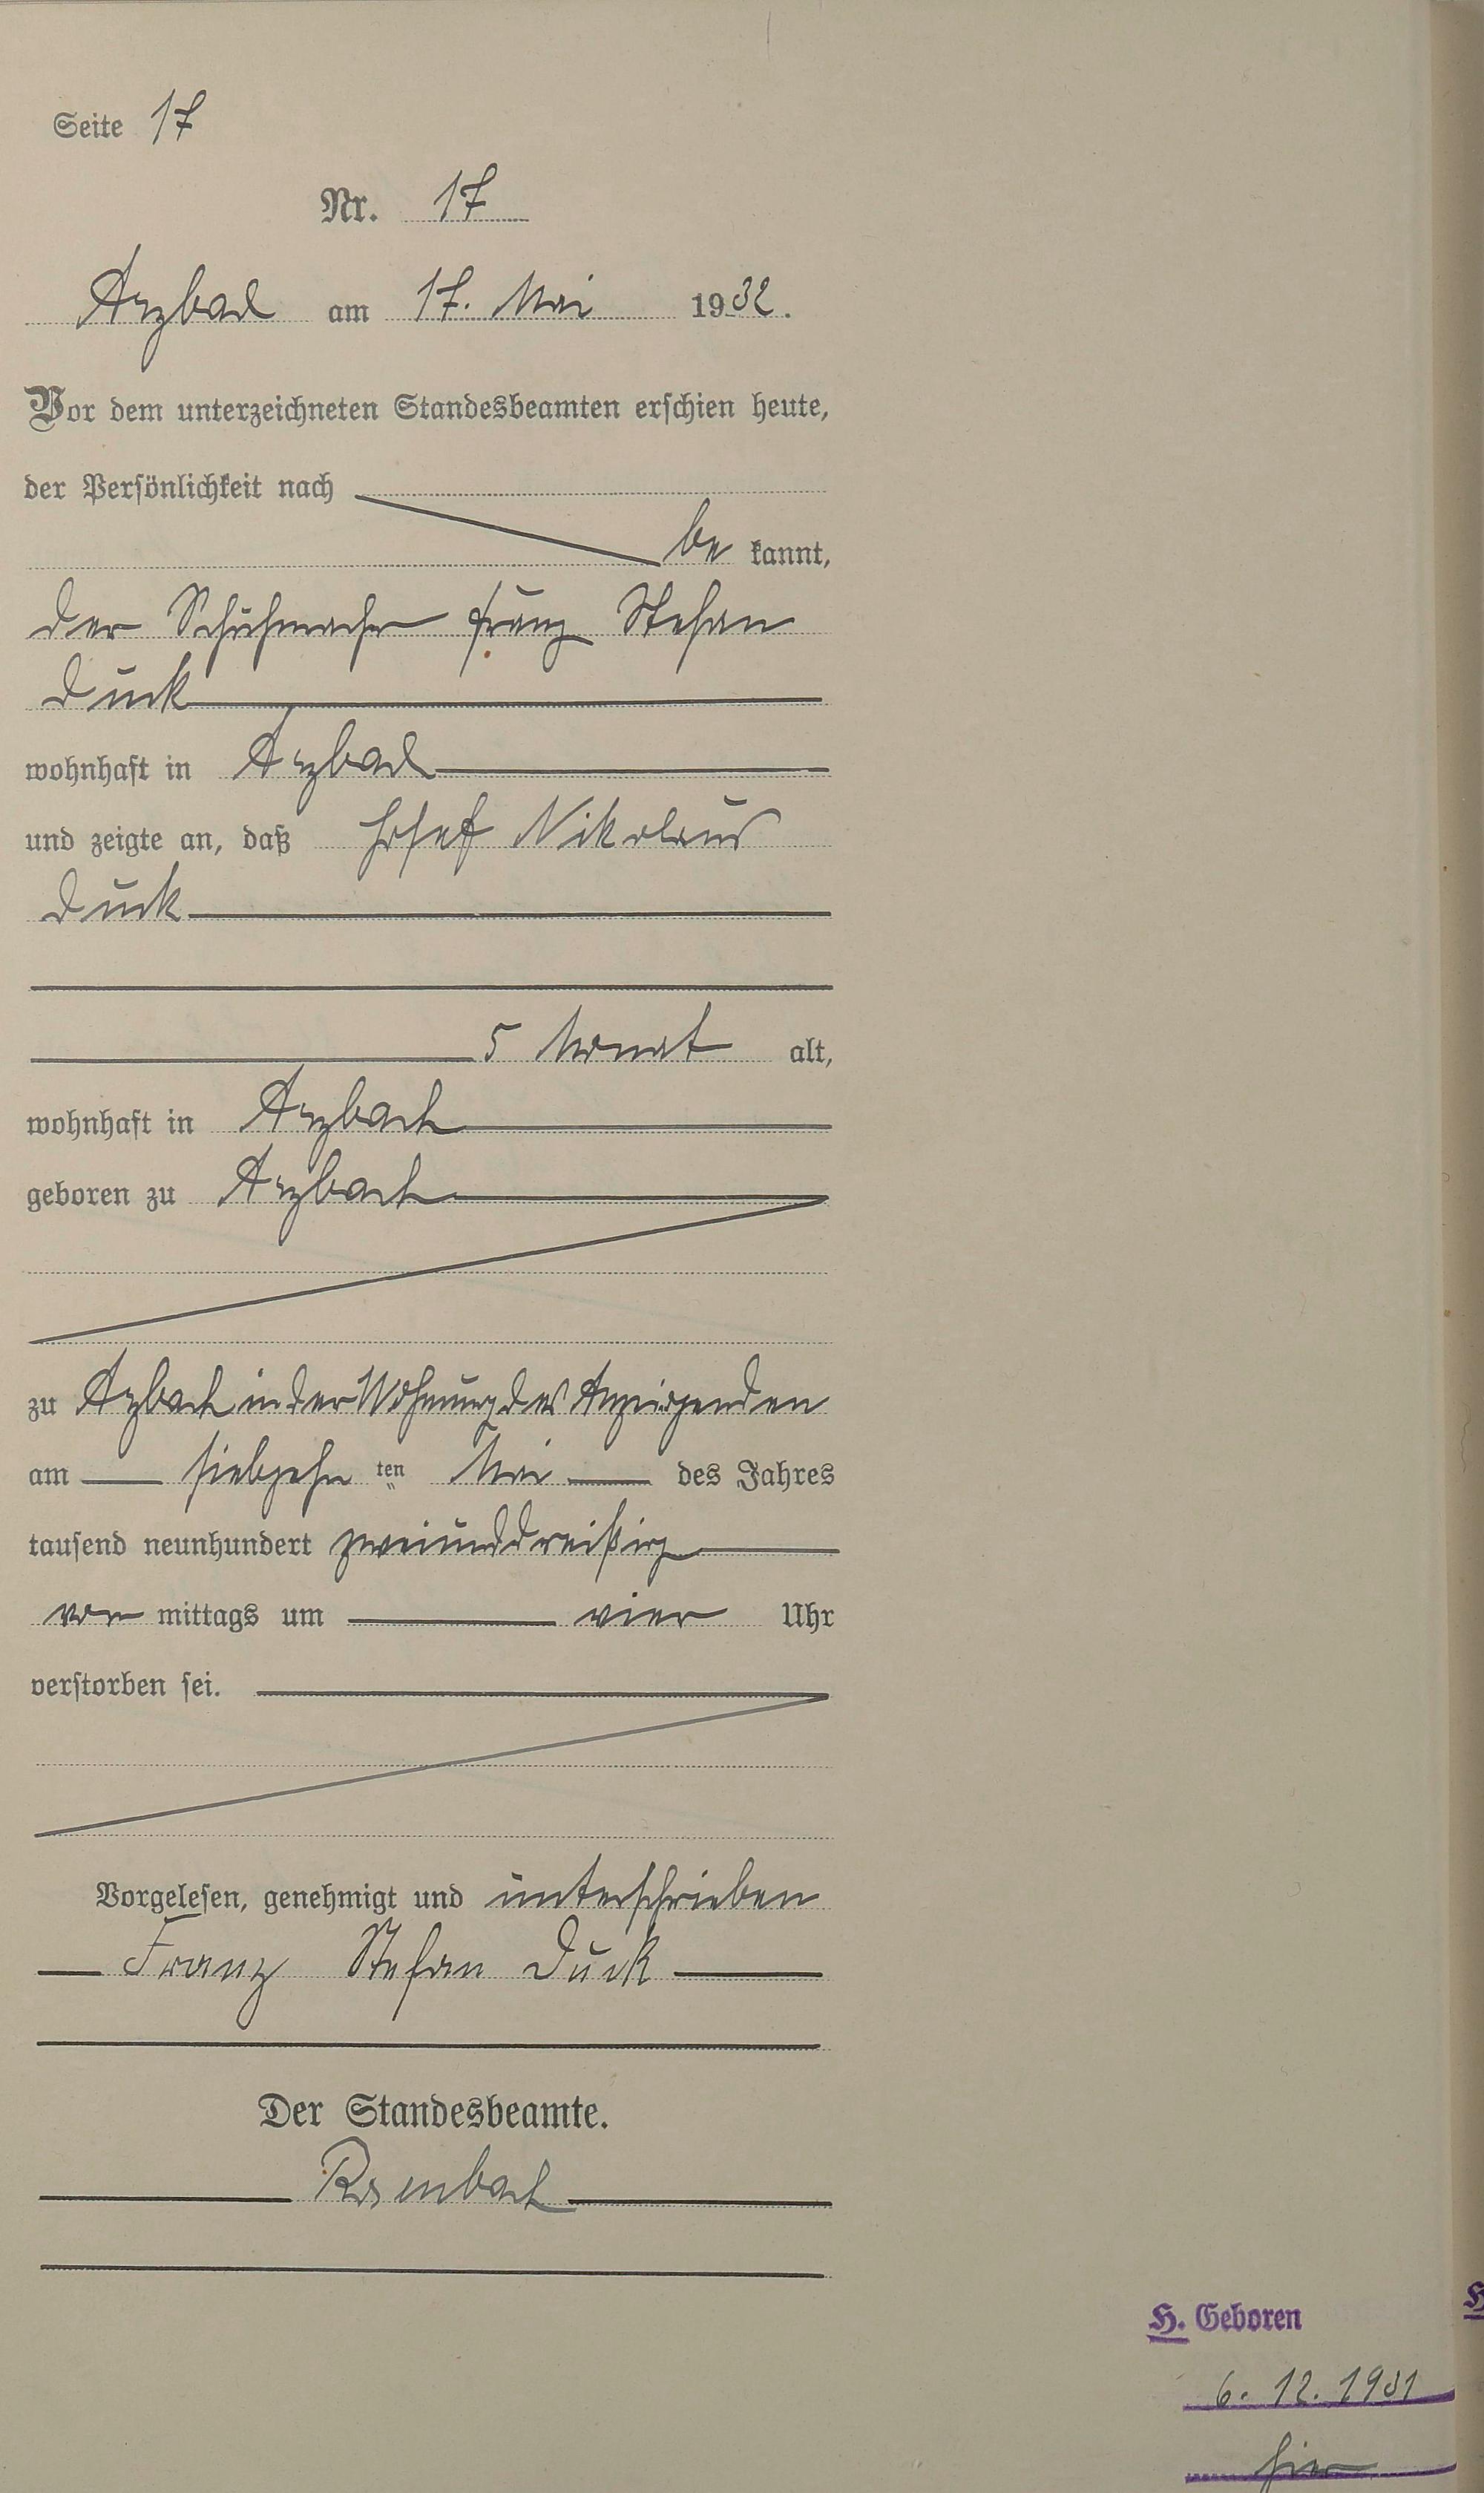 Seite 17
Nr. 17
Arzbach am 17. Mai 1932.
Vor dem unterzeichneten Standesbeamten erschien heute,
der Persönlichkeit nach
be kannt,
der Schuhmacher Franz Stefan
Duck
wohnhaft in Arzbach
und zeigte an, daß Josef Nikolaus
Duck
5 Monat alt,
wohnhaft in Arzbach
geboren zu Arzbach
zu Arzbach in der Wohnung des Anzeigenden
am siebzehn ten Mai des Jahres
tausend neunhundert zweiunddreißig
vor mittags um vier Uhr
verstorben sei.
Vorgelesen, genehmigt und unterschrieben
Franz Stefan Duck
Der Standesbeamte.
H. Geboren
6. 12. 1931
hier